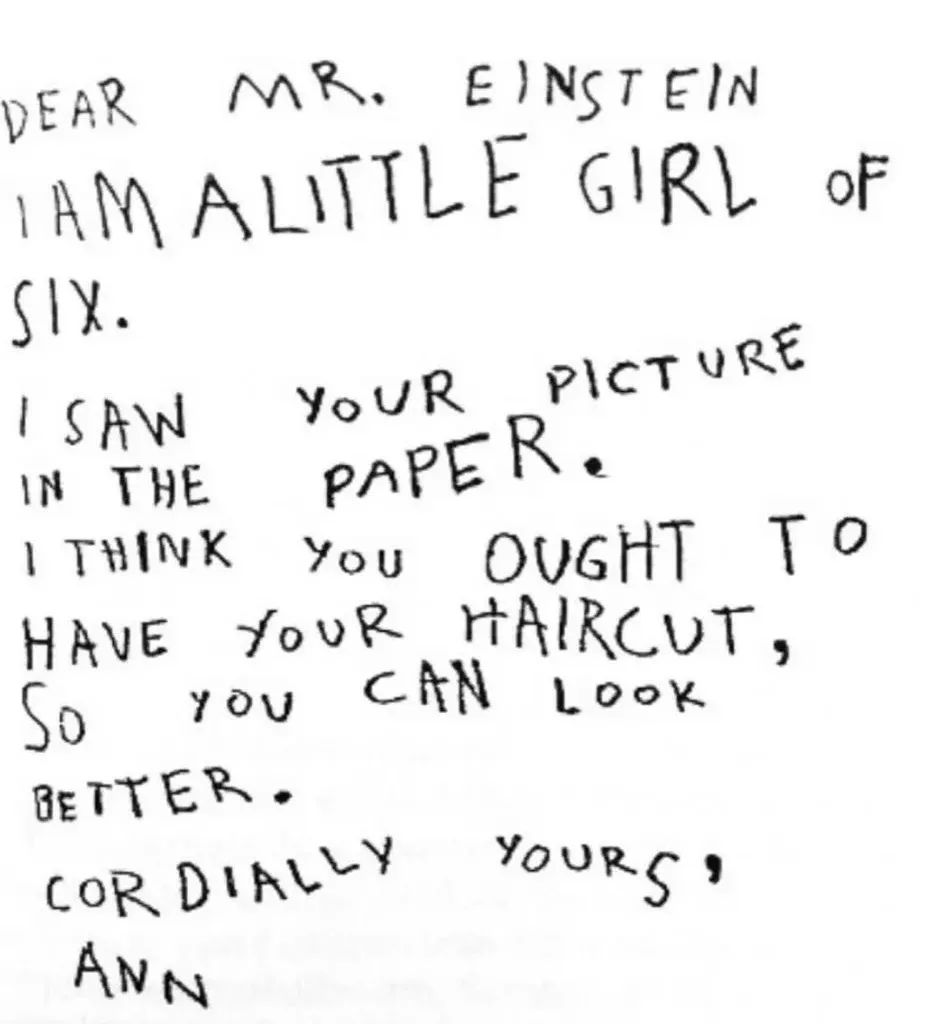 DEAR MR. EINSTEIN
I AM A LITTLE GIRL OF
SIX.
I SAW YOUR PICTURE
IN THE PAPER.
I THINK YOU OUGHT TO
HAVE YOUR HAIRCUT,
SO YOU CAN LOOK
BETTER.
CORDIALLY YOURS,
ANN